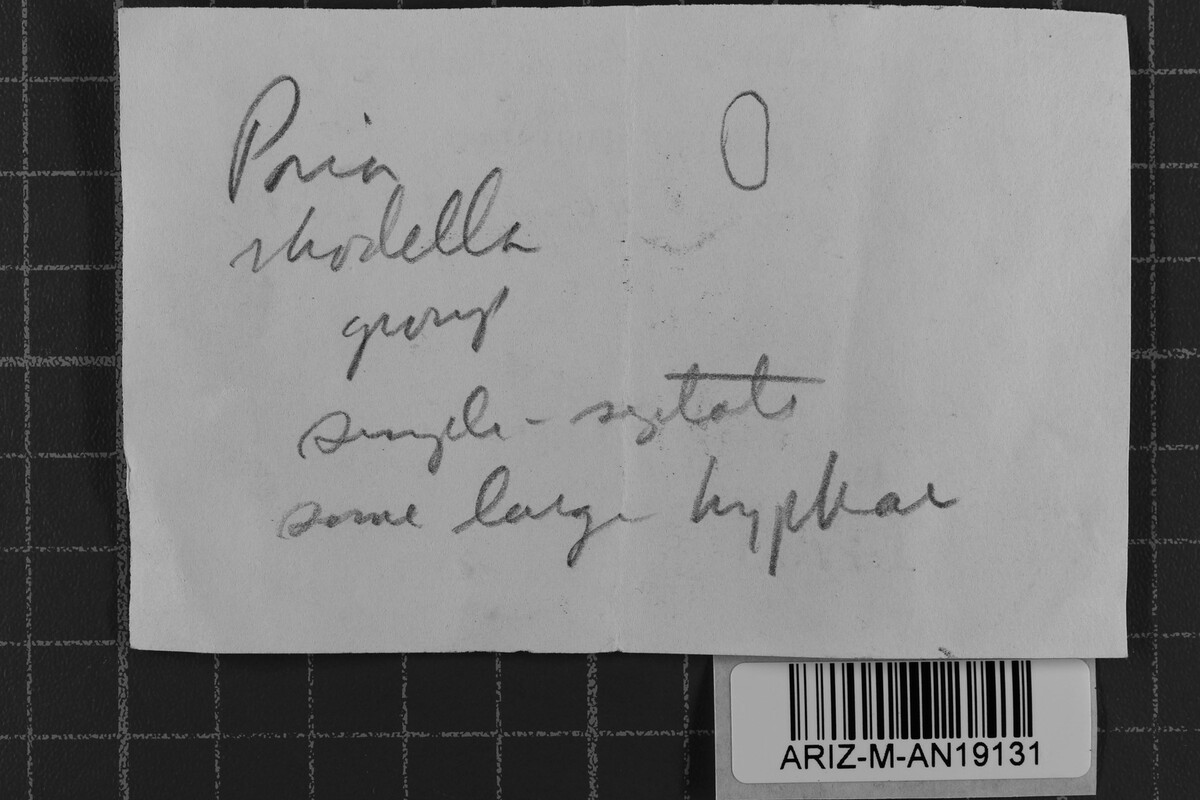 Poria
rhodella
group
simple-septate
some large hyphae
ARIZ-M-AN19131